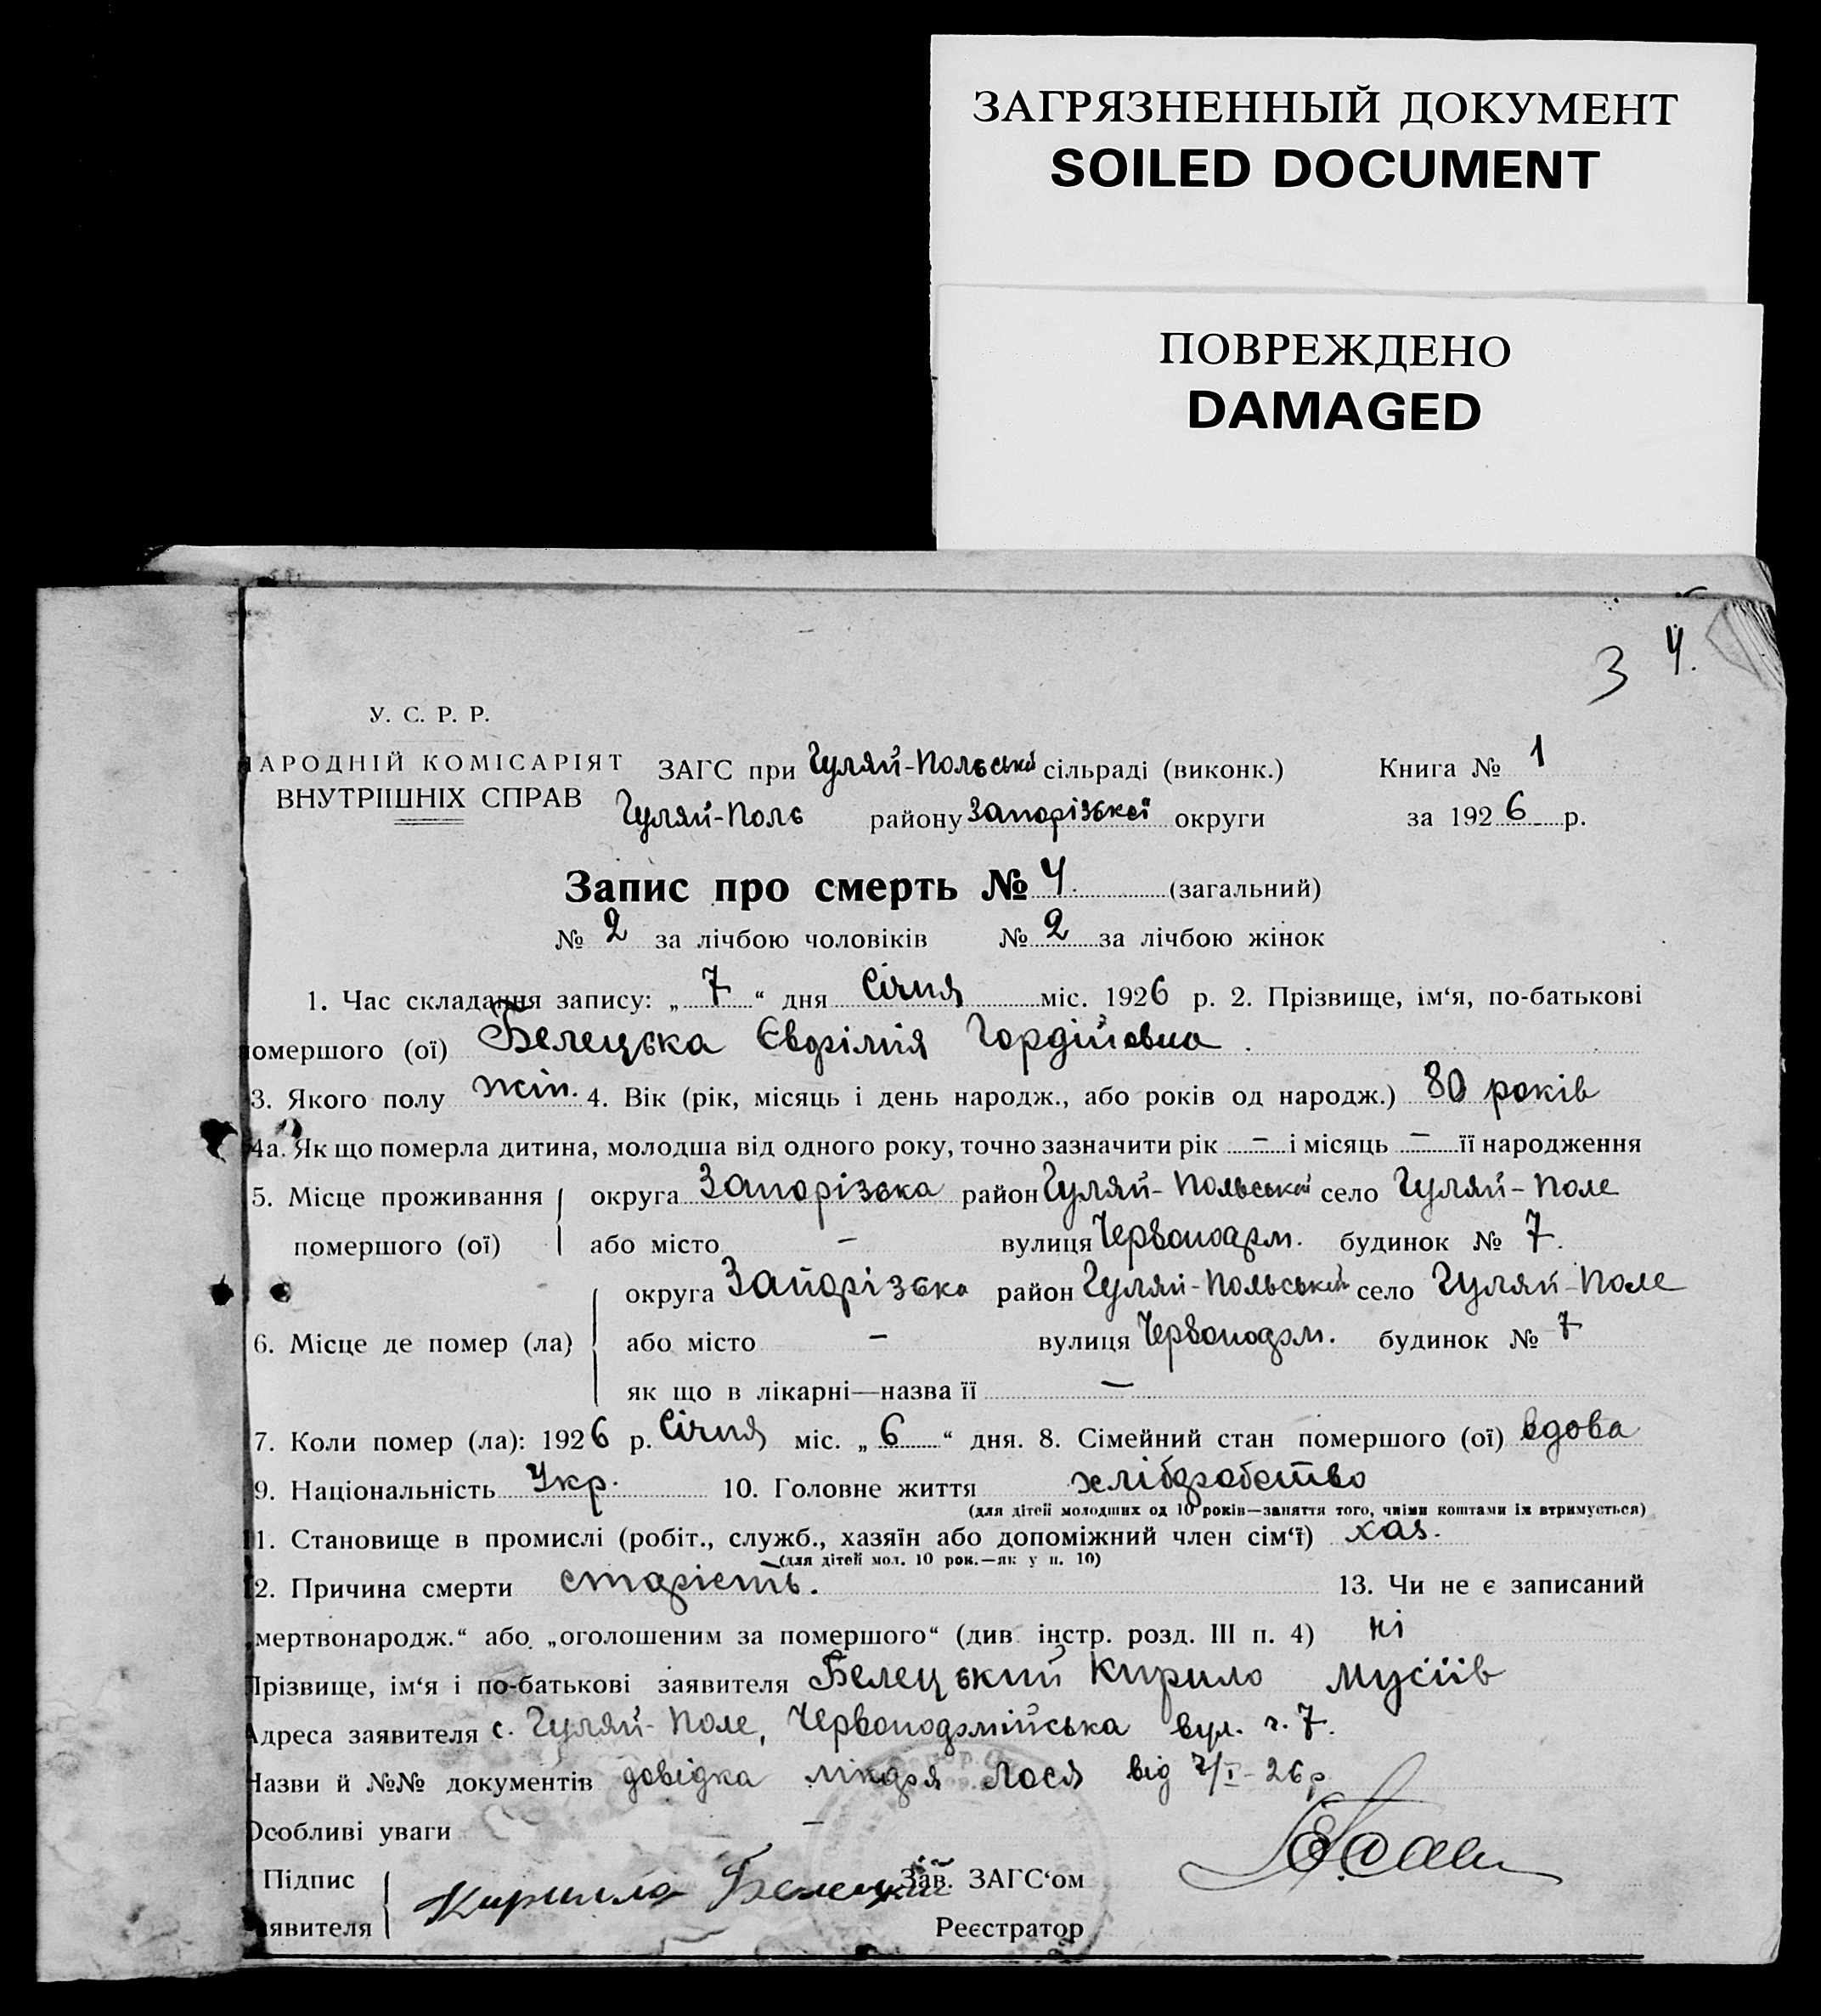 ЗАГРЯЗНЕННЫЙ ДОКУМЕНТ
SOILED DOCUMENT
ПОВРЕЖДЕНО
DAMAGED
3 4.
У. С. Р. Р.
НАРОДНІЙ КОМІСАРІЯТ
ВНУТРІШНІХ СПРАВ
ЗАГС при Гуляй-Польській сільраді (виконк.) Книга № 1
Гуляй-Поле району Запорізької округи за 1926 р.
Запис про смерть № 4. (загальний)
№ 2 за лічбою чоловіків № 2 за лічбою жінок
1. Час складання запису: „7“ дня Січня міс. 1926 р. 2. Прізвище, ім‘я, по-батькові
помершого (ої) Белецька Євфімія Гордіївна.
3. Якого полу жін. 4. Вік (рік, місяць і день народж., або років од народж.) 80 років
4а. Як що померла дитина, молодша від одного року, точно зазначити рік – і місяць – її народження
5. Місце проживання помершого (ої) округа Запорізька район Гуляй-Польський село Гуляй-Поле
або місто – вулиця Червоноарм. будинок № 7.
6. Місце де помер (ла) округа Запорізька район Гуляй-Польський село Гуляй-Поле
або місто – вулиця Червоноарм. будинок № 7
як що в лікарні—назва її –
7. Коли помер (ла): 1926 р. Січня міс. „6“ дня. 8. Сімейний стан помершого (ої) вдова
9. Національність Укр. 10. Головне життя хліборобство
(для дітей молодших од 10 років—заняття того, чиїми коштами їх втримується)
11. Становище в промислі (робіт., служб., хазяїн або допоміжний член сім‘ї) хаз.
(для дітей мол. 10 рок.—як у п. 10)
12. Причина смерти старість. 13. Чи не є записаний
„мертвонародж.“ або „оголошеним за помершого“ (див. інстр. розд. III п. 4) ні
Прізвище, ім‘я і по-батькові заявителя Белецький Кирило Мусіїв
Адреса заявителя с. Гуляй-Поле, Червоноармійська вул. ч. 7.
Назви й №№ документів довідка лікаря Лося від 7/I-26р
Особливі уваги –
Підпис заявителя Кирилло Белецкий
Зав. ЗАГС‘ом
Реєстратор